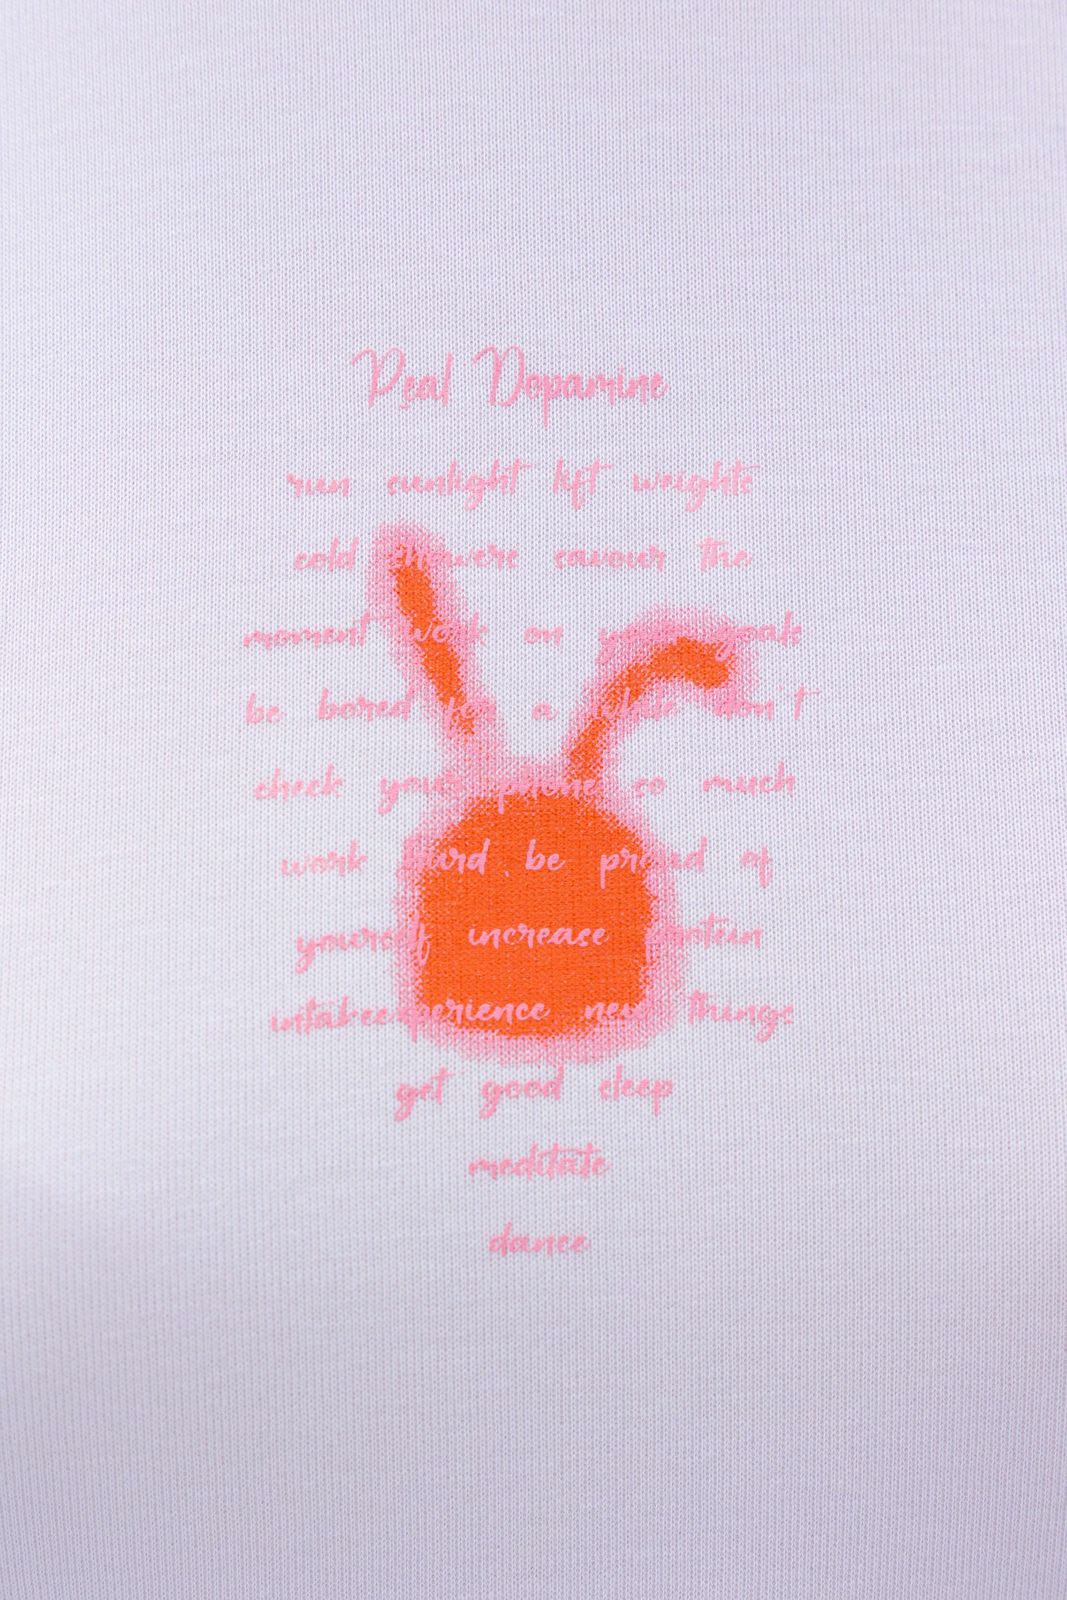 Real Dopamine
run sunlight lift weights
cold showers savour the
moment work on your goals
be bored for a while don't
check your phone so much
work hard, be proud of
yourself increase protein
intake experience new things
get good sleep
meditate
dance